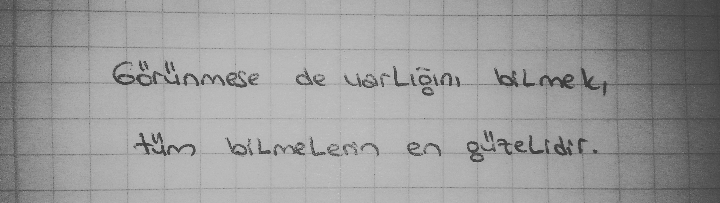 Görünmese de varlığını bilmek,
tüm bilmelerin en güzelidir.